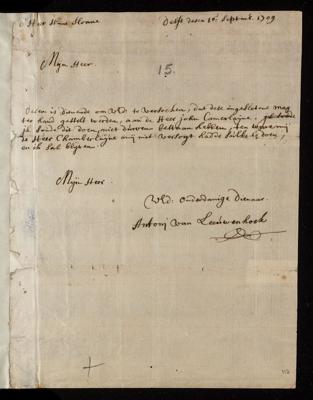 d'Heer Hans Sloane Delft desen 10e Septemb. 1709
Mijn Heer.
15.
Desen is dienende om Uld. te versoeken, dat dese ingeslotene mag
ter hand gestelt werden, aan de Heer John Camerlaijne,
ik soude dit doen, niet durven bestaan hebben, ten ware mij
de Heer Chamberlaijne mij niet versogt hadde sulks te doen,
en ik sal blijven.
Mijn Heer
Uld. Onderdanige Dienaar.
Antonj van Leeuwenhoek